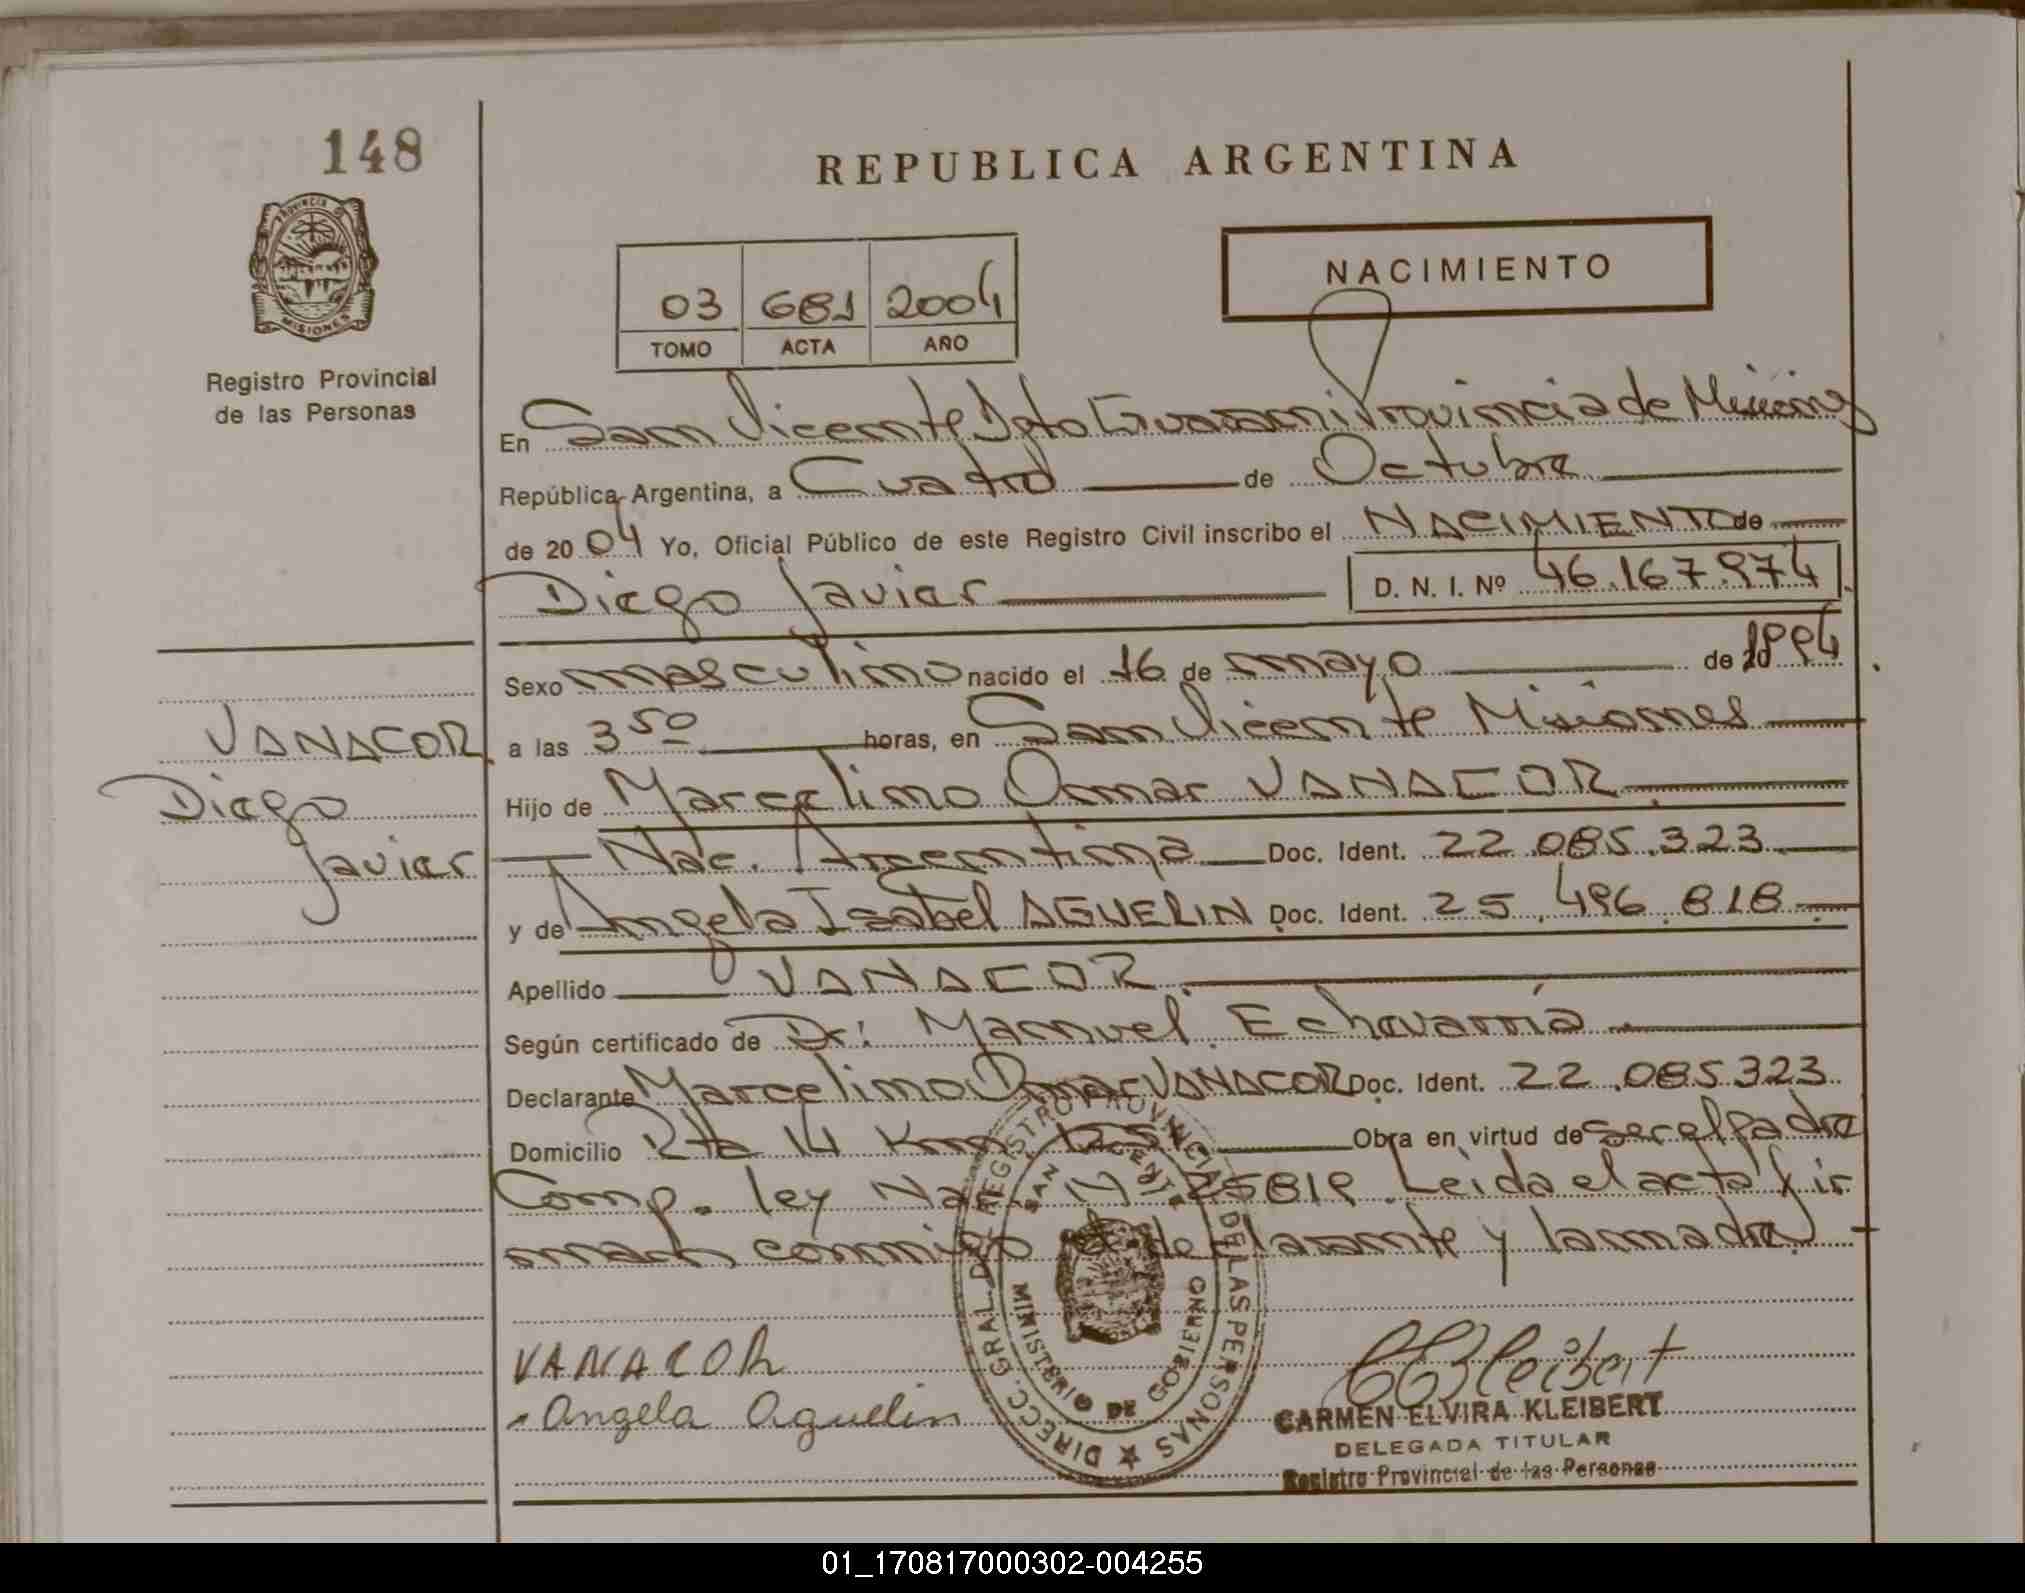 148
REPUBLICA ARGENTINA
PROVINCIA D
MISIONES
Registro Provincial
de las Personas
NACIMIENTO
03 681 2004
TOMO ACTA AÑO
En San Vicente Dpto Guarani Provincia de Misiones
República Argentina, a Cuatro de Octubre
de 2004 Yo, Oficial Público de este Registro Civil inscribo el NACIMIENTO de
Diego Javier D. N. I. Nº 46.167.974
Sexo masculino nacido el 16 de mayo de 1994
a las 3 50 horas, en San Vicente Misiones
Hijo de Marcelino Omar VANACOR
Nac. Argentina Doc. Ident. 22.085.323
y de Angela Isabel AGUELIN Doc. Ident. 25.496.818
Apellido VANACOR
VANACOR
Diego
Javier
Según certificado de Dr: Manuel Echavarría
Declarante Marcelino Omar VANACOR Doc. Ident. 22.085.323
Domicilio Rta 14 Km Obra en virtud de ser el padre
Comp. ley Nac. Nº 25819. Leida el acta fir
man conmigo el declarante y la madre
VANACOR
Angela Aguelin
DIRECC. GRAL. DEL REGISTRO PROVINCIAL DE LAS PERSONAS
SAN VICENTE
MINISTERIO DE GOBIERNO
CEKleibert
CARMEN ELVIRA KLEIBERT
DELEGADA TITULAR
Registro Provincial de las Personas
01_170817000302-004255